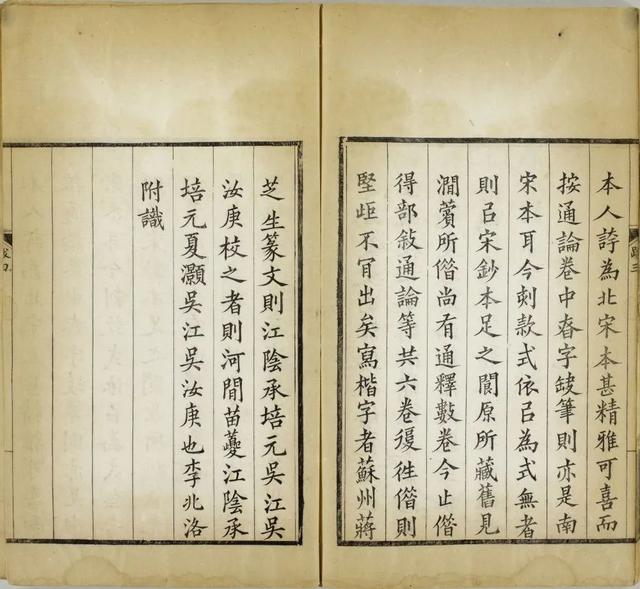 本人誇為北宋本甚精雅可喜而
按通論卷中昚字缺筆則亦是南
宋本耳今刻款式依㠯為式無者
則㠯宋鈔本足之閬原所藏舊見
澗薲所偝尚有通釋數卷今止偝
得部敍通論等共六卷復徃偝則
堅歫不肎出矣寫楷字者蘇州蔣
芝生篆文則江陰承培元吳江吳
汝庚校之者則河閒苗夔江陰承
培元夏灝吳江吳汝庚也李兆洛
附識